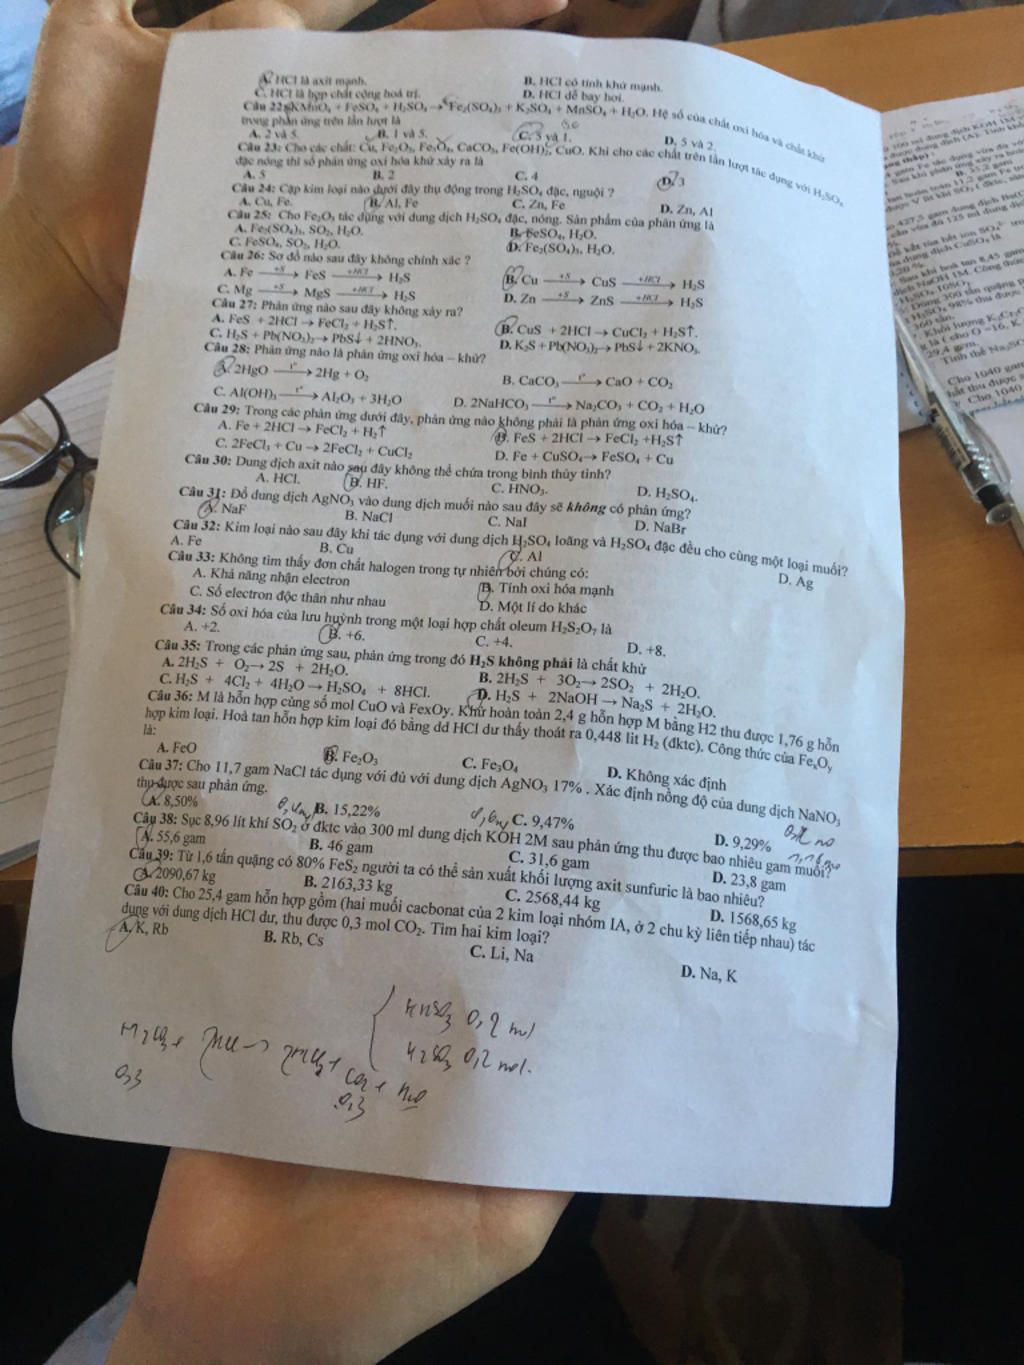 A. HCl là axit mạnh.
B. HCl có tính khử mạnh.
C. HCl là hợp chất cộng hoá trị.
D. HCl dễ bay hơi.
Câu 22: KMnO₄ + FeSO₄ + H₂SO₄ → Fe₂(SO₄)₃ + K₂SO₄ + MnSO₄ + H₂O. Hệ số của chất oxi hóa và chất khử
trong phản ứng trên lần lượt là
A. 2 và 5.
B. 1 và 5.
C. 5 và 1.
D. 5 và 2.
Câu 23: Cho các chất: Cu, Fe₂O₃, Fe₃O₄, CaCO₃, Fe(OH)₂, CuO. Khi cho các chất trên lần lượt tác dụng với H₂SO₄
đặc nóng thì số phản ứng oxi hóa khử xảy ra là
A. 5
B. 2
C. 4
D. 3
Câu 24: Cặp kim loại nào dưới đây thụ động trong H₂SO₄ đặc, nguội ?
A. Cu, Fe.
B. Al, Fe
C. Zn, Fe
D. Zn, Al
Câu 25: Cho Fe₂O₃ tác dụng với dung dịch H₂SO₄ đặc, nóng. Sản phẩm của phản ứng là
A. Fe₂(SO₄)₃, SO₂, H₂O.
B. FeSO₄, H₂O.
C. FeSO₄, SO₂, H₂O.
D. Fe₂(SO₄)₃, H₂O.
Câu 26: Sơ đồ nào sau đây không chính xác ?
A. Fe +S→ FeS +HCl→ H₂S
B. Cu +S→ CuS +HCl→ H₂S
C. Mg +S→ MgS +HCl→ H₂S
D. Zn +S→ ZnS +HCl→ H₂S
Câu 27: Phản ứng nào sau đây không xảy ra?
A. FeS + 2HCl → FeCl₂ + H₂S↑.
B. CuS + 2HCl → CuCl₂ + H₂S↑.
C. H₂S + Pb(NO₃)₂→ PbS↓ + 2HNO₃.
D. K₂S + Pb(NO₃)₂→ PbS↓ + 2KNO₃.
Câu 28: Phản ứng nào là phản ứng oxi hóa – khử?
A. 2HgO t°→ 2Hg + O₂
B. CaCO₃ t°→ CaO + CO₂
C. Al(OH)₃ t°→ Al₂O₃ + 3H₂O
D. 2NaHCO₃ t°→ Na₂CO₃ + CO₂ + H₂O
Câu 29: Trong các phản ứng dưới đây, phản ứng nào không phải là phản ứng oxi hóa – khử?
A. Fe + 2HCl → FeCl₂ + H₂↑
B. FeS + 2HCl → FeCl₂ +H₂S↑
C. 2FeCl₃ + Cu → 2FeCl₂ + CuCl₂
D. Fe + CuSO₄→ FeSO₄ + Cu
Câu 30: Dung dịch axit nào sau đây không thể chứa trong bình thủy tinh?
A. HCl.
B. HF.
C. HNO₃.
D. H₂SO₄.
Câu 31: Đổ dung dịch AgNO₃ vào dung dịch muối nào sau đây sẽ không có phản ứng?
A. NaF
B. NaCl
C. NaI
D. NaBr
Câu 32: Kim loại nào sau đây khi tác dụng với dung dịch H₂SO₄ loãng và H₂SO₄ đặc đều cho cùng một loại muối?
A. Fe
B. Cu
C. Al
D. Ag
Câu 33: Không tìm thấy đơn chất halogen trong tự nhiên bởi chúng có:
A. Khả năng nhận electron
B. Tính oxi hóa mạnh
C. Số electron độc thân như nhau
D. Một lí do khác
Câu 34: Số oxi hóa của lưu huỳnh trong một loại hợp chất oleum H₂S₂O₇ là
A. +2.
B. +6.
C. +4.
D. +8.
Câu 35: Trong các phản ứng sau, phản ứng trong đó H₂S không phải là chất khử
A. 2H₂S + O₂→ 2S + 2H₂O.
B. 2H₂S + 3O₂→ 2SO₂ + 2H₂O.
C. H₂S + 4Cl₂ + 4H₂O → H₂SO₄ + 8HCl.
D. H₂S + 2NaOH → Na₂S + 2H₂O.
Câu 36: M là hỗn hợp cùng số mol CuO và FexOy. Khử hoàn toàn 2,4 g hỗn hợp M bằng H2 thu được 1,76 g hỗn
hợp kim loại. Hoà tan hỗn hợp kim loại đó bằng dd HCl dư thấy thoát ra 0,448 lit H₂ (đktc). Công thức của FeₓOᵧ
là:
A. FeO
B. Fe₂O₃
C. Fe₃O₄
D. Không xác định
Câu 37: Cho 11,7 gam NaCl tác dụng với đủ với dung dịch AgNO₃ 17% . Xác định nồng độ của dung dịch NaNO₃
thu được sau phản ứng.
A. 8,50%
B. 15,22%
C. 9,47%
D. 9,29%
Câu 38: Sục 8,96 lít khí SO₂ ở đktc vào 300 ml dung dịch KOH 2M sau phản ứng thu được bao nhiêu gam muối?
A. 55,6 gam
B. 46 gam
C. 31,6 gam
D. 23,8 gam
Câu 39: Từ 1,6 tấn quặng có 80% FeS₂ người ta có thể sản xuất khối lượng axit sunfuric là bao nhiêu?
A. 2090,67 kg
B. 2163,33 kg
C. 2568,44 kg
D. 1568,65 kg
Câu 40: Cho 25,4 gam hỗn hợp gồm (hai muối cacbonat của 2 kim loại nhóm IA, ở 2 chu kỳ liên tiếp nhau) tác
dụng với dung dịch HCl dư, thu được 0,3 mol CO₂. Tìm hai kim loại?
A. K, Rb
B. Rb, Cs
C. Li, Na
D. Na, K
0,2 mol
0,2 mol.
0,3
0,3